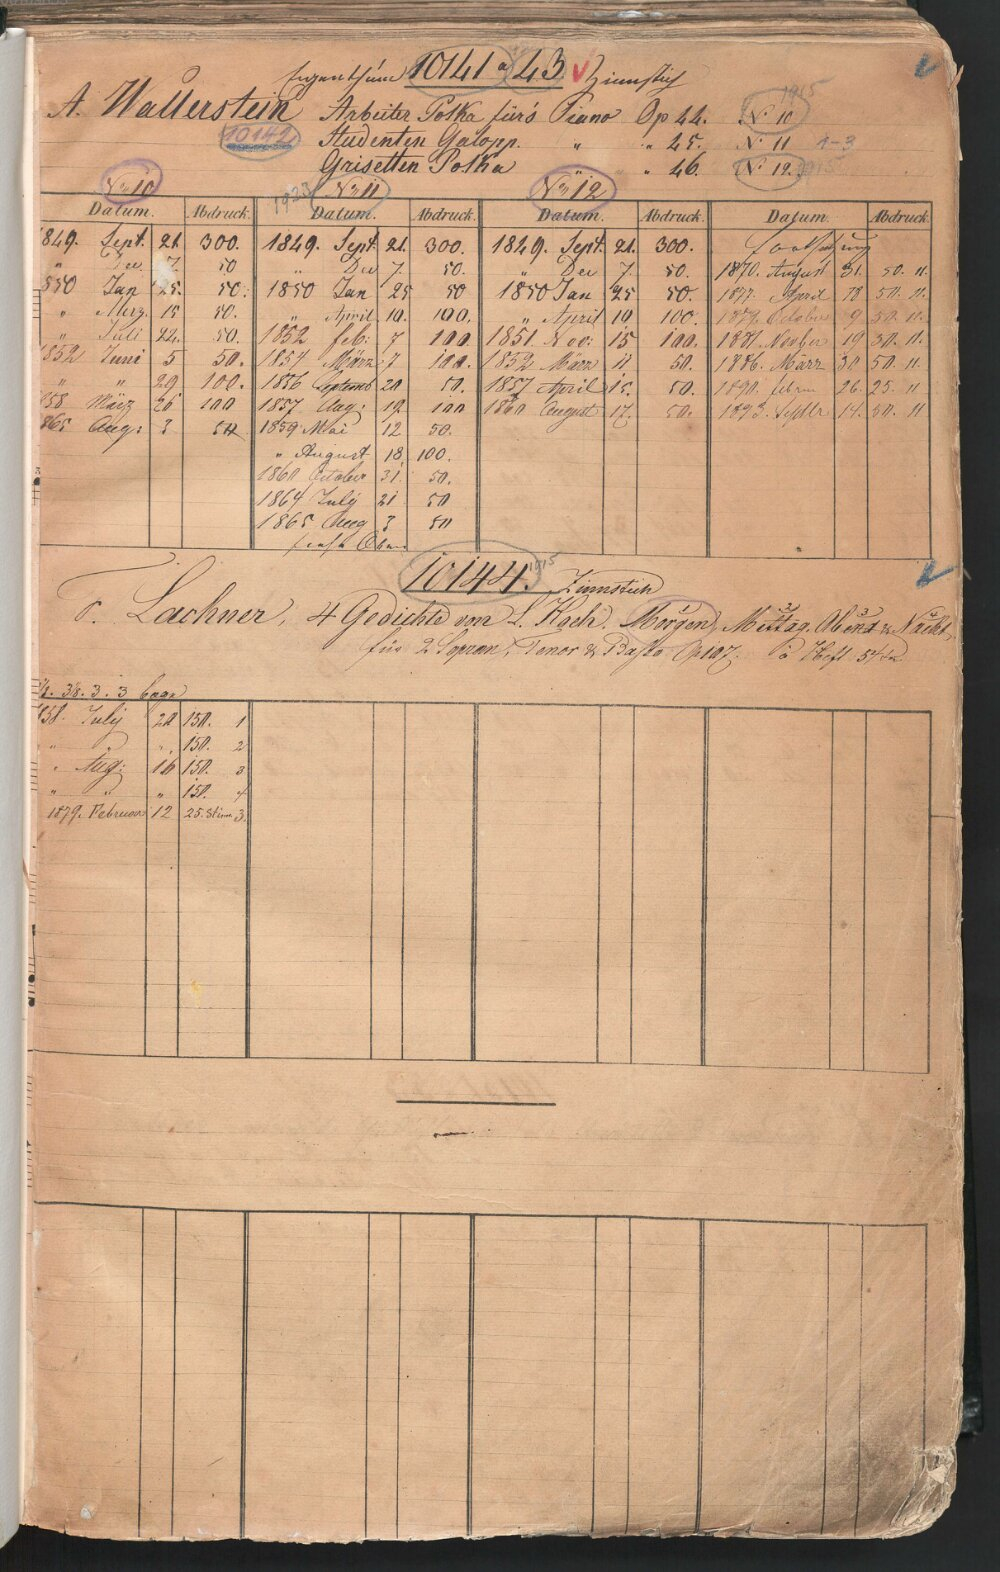 Eigenthum 10141 a 43. V Zinnstich
A. Wallerstein Arbeiter Polka für's Piano Op 44. No 10 1915
10142 Studenten Galopp. " " 45. N 11 1-3
Grisetten Polka " " 46. No 12. 1915
No 10 1923 No 11 No 12
Datum. Abdruck. Datum. Abdruck. Datum. Abdruck. Datum. Abdruck.
1849. Sept. 21. 300. 1849. Sept 21. 300. 1849. Sept. 21. 300. Fortsetzung
" Dec 7. 50 " Dec 7. 50. " Dec 7. 50. 1870. August 31. 50. 11.
1850 Jan 25. 50. 1850 Jan 25 50 1850 Jan 25 50. 1877. April 18 50. 11.
" Merz. 15 50. " April 10. 100. " April 10 100. 1879. October 9 50. 11.
" Juli 22. 50. 1852 feb: 7 100 1851. Nov: 15 100. 1881. Novber 19 50. 11.
1852 Juni 5 50. 1854 März 7 100. 1852 März 11 50. 1886. März 30 50. 11
" " 29 100. 1856 Septemb 20 50. 1857 April 15. 50. 1890. febru 26. 25. 11
1858. März 26 100 1857 Aug: 19. 100 1860 August 17. 50. 1893. Septbr 14. 50. 11
1865 Aug: 3 50 1859 Mai 12 50.
" August 18 100.
1860 October 31. 50.
1864 July 21 50
1865 Aug 3 50
siehe Oben
10144. 1915 Zinnstich
F. Lachner, 4 Gedichte von L. Koch. Morgen, Mittag, Abend & Nacht,
für 2 Sopran, Tenor & Basso Op 107. à Heft 54 kr
3. 3 bogn
1858. July 20 150. 1
" " " 150. 2
" Aug: 16 150. 3
" " " 150. 4
1879. Februar 12 25. Stim 3.